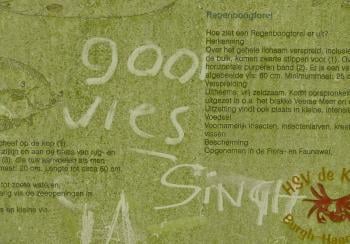 Regenboogforel
Hoe ziet een Regenboogforel er uit?
Herkenning
Over het gehele lichaam verspreid, inclusief
de buik, komen zwarte stippen voor (1). Over
horizontale purperen band (2). Er is een
afgebeelde vis: 60 cm. Minimummaat: 25
Verspreiding
Uitheems, vrij zeldzaam. Komt oorspronkelijk
uitgezet in o.a. het brakke Veerse Meer en
Uitzetting vindt ook plaats in kleine, intensief
Voedsel
Voornamelijk insecten, insectenlarven, kreeft
vissen
Bescherming
Opgenomen in de Flora- en Faunawet.
goo
vies
SINGH
heel op de kop (1).
zijn en aan de basis van rug- en
(3), die
maat: 20 cm. Lengte tot circa 60 cm.
tot zoete wateren,
via de zeeopeningen in
en kleine vis.
HSV de K
Burgh-Haam